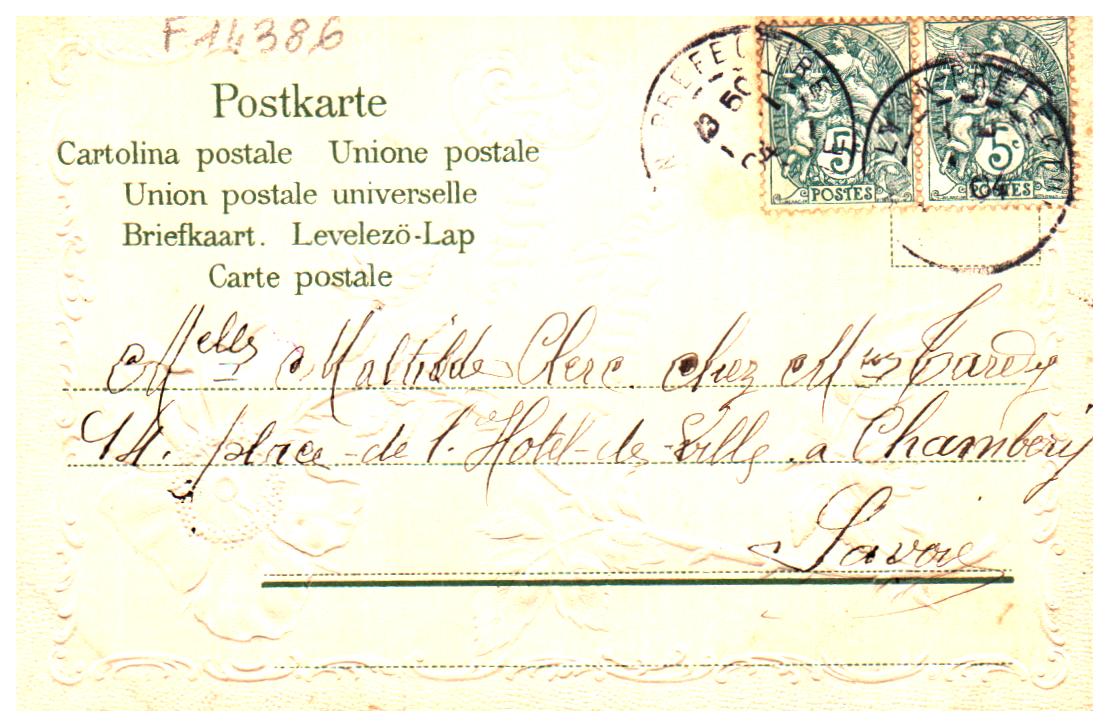 F14386
Postkarte
Cartolina postale Unione postale
Union postale universelle
Briefkaart. Levelező-Lap
Carte postale
5c
POSTES
5c
POSTES
LYON PREFECTURE
Melle Mathilde Clerc. chez Mme Tardy
14. place de l'Hotel-de-Ville. a Chambery
Savoie